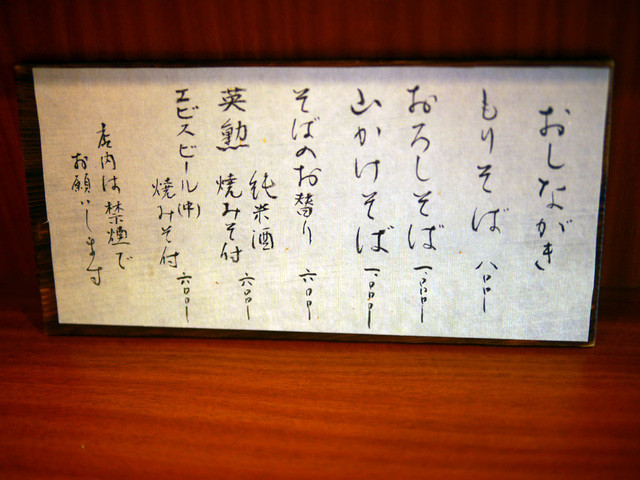 おしながき
もりそば 八〇〇ー
おろしそば 一、〇〇〇ー
山かけそば 一、〇〇〇ー
そばのお替り 六〇〇ー
英勲 純米酒 焼みそ付 六〇〇ー
エビスビール(中) 焼みそ付 六〇〇ー
店内は禁煙で
お願いします